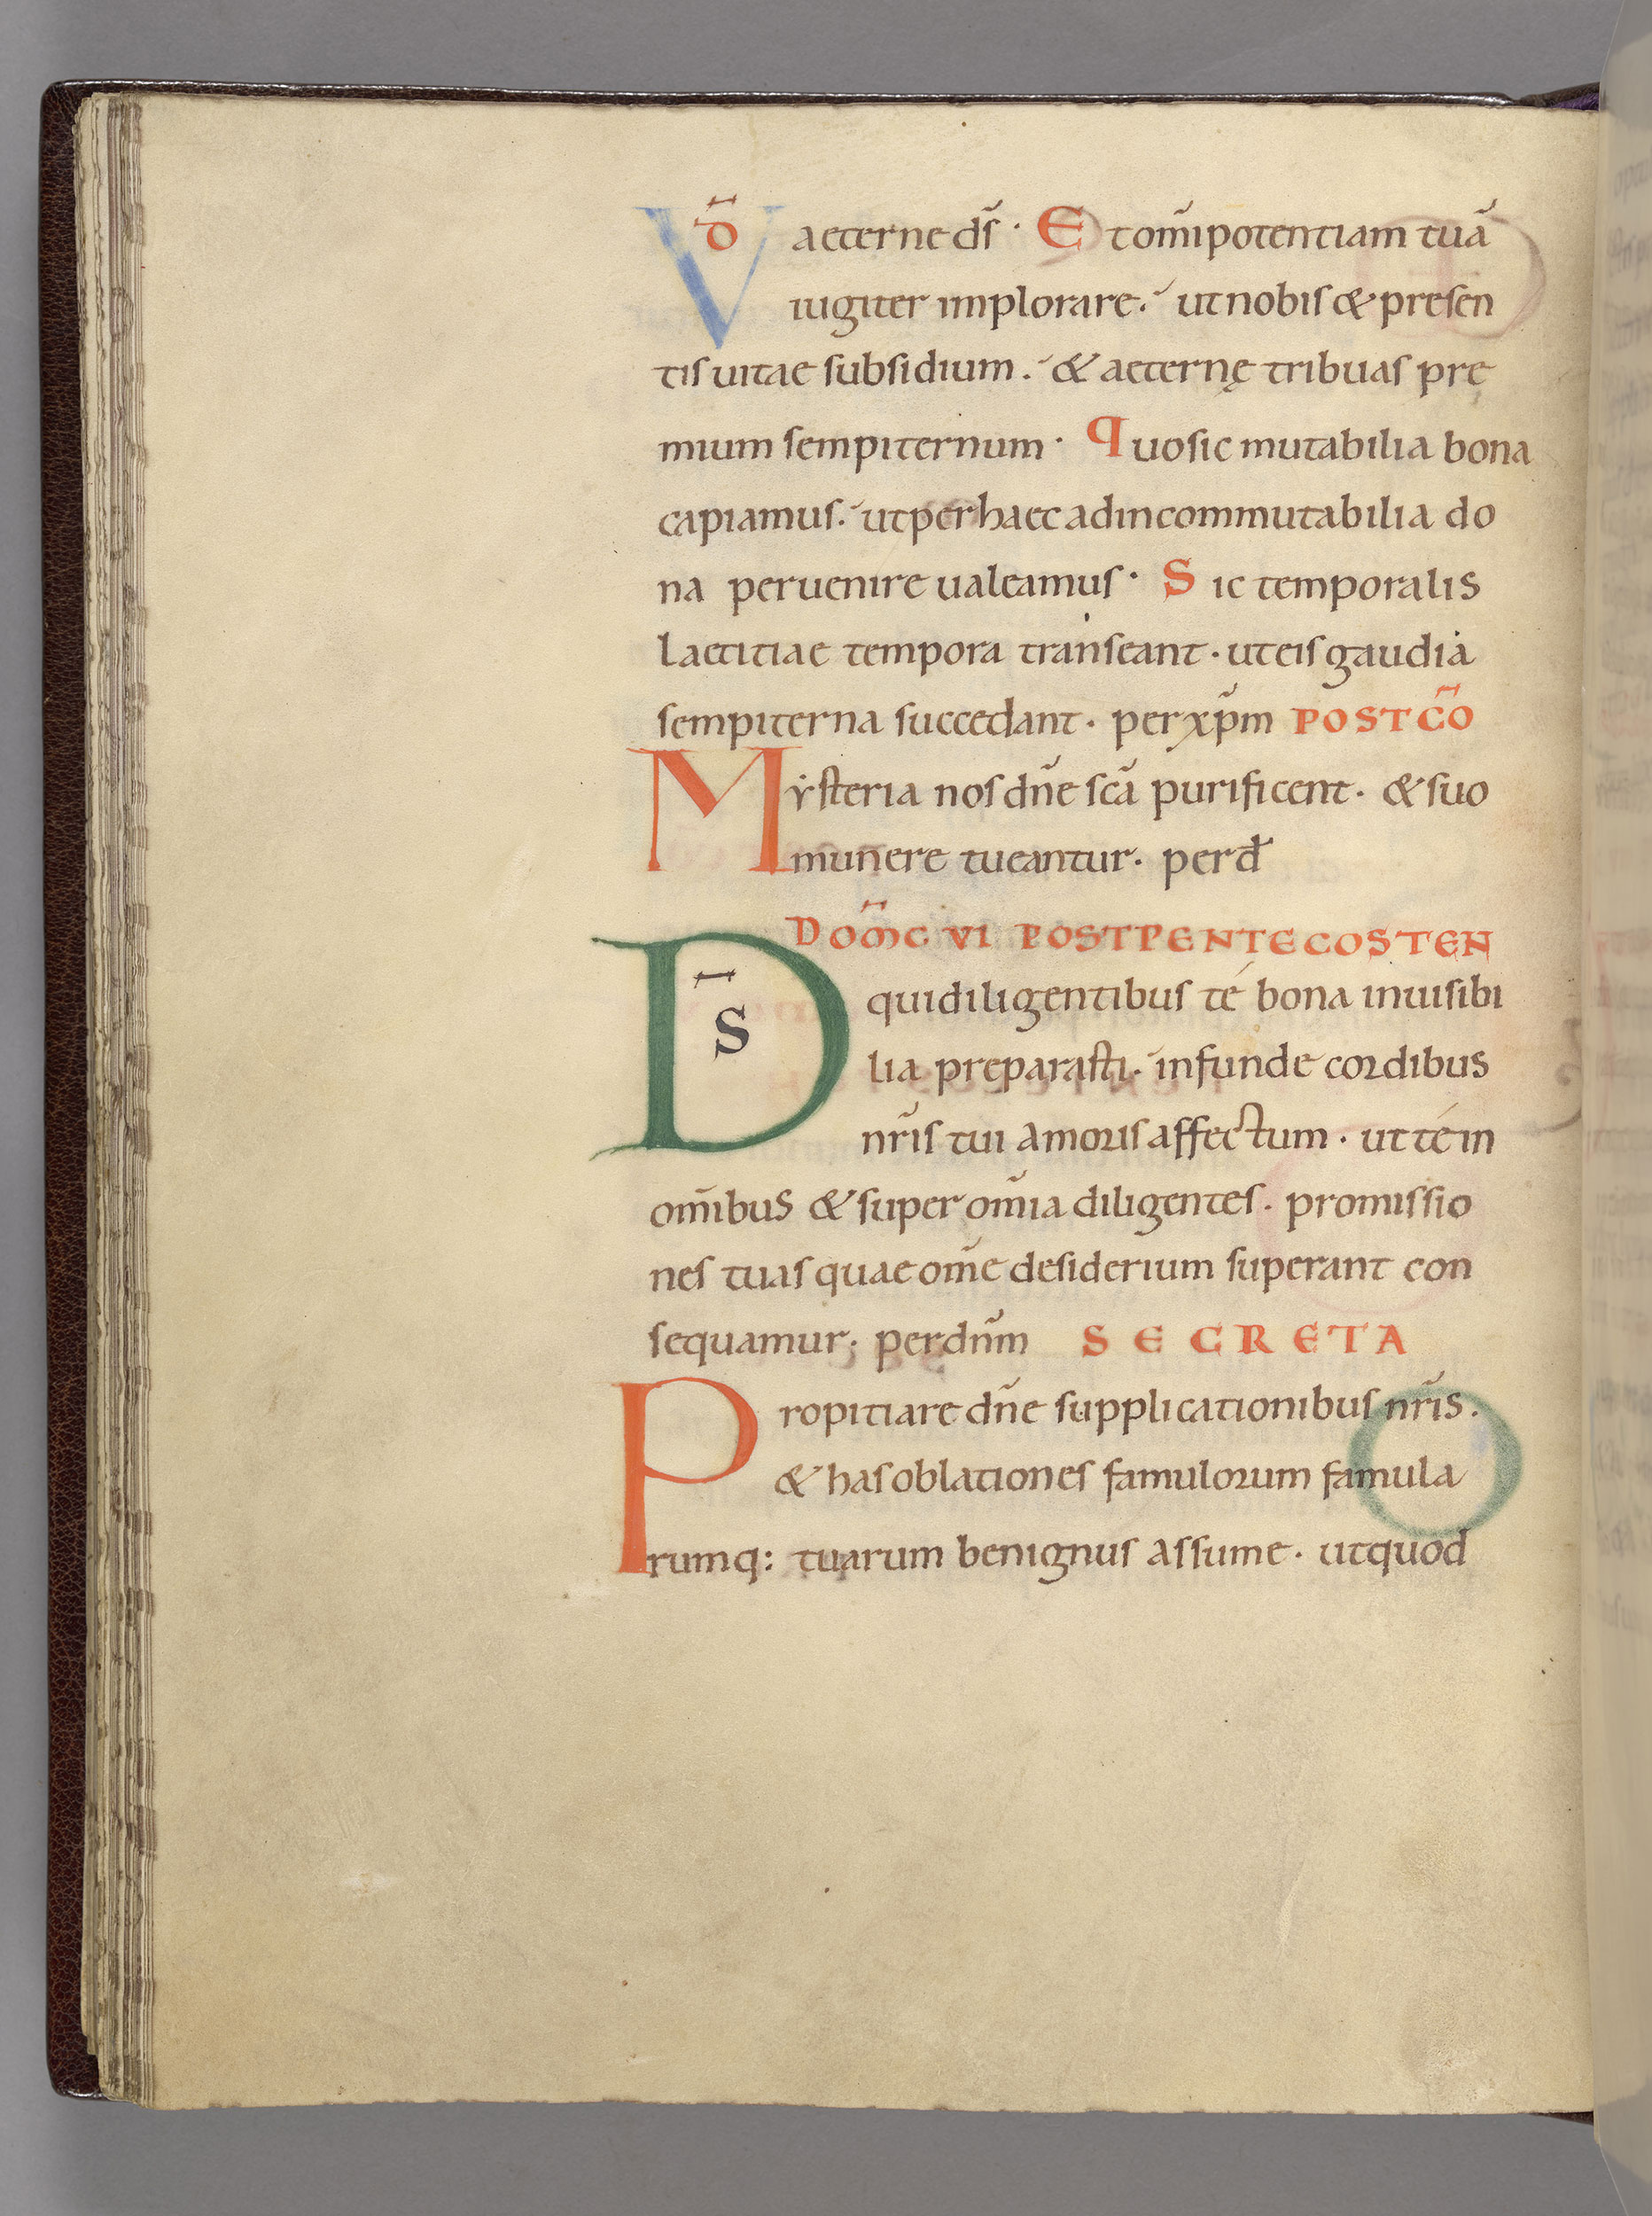 VD̄ aeterne ds̄ · Et om̄ipotentiam tuā
iugiter implorare. ut nobis & presen
tis uitae subsidium. & aeternę tribuas prę
mium sempiternum · Quo sic mutabilia bona
capiamus. ut per haec ad incommutabilia do
na peruenire ualeamus · Sic temporalis
laetitiae tempora transeant · ut eis gaudia
sempiterna succedant · per xp̄m POST CŌ
Mẏsteria nos dn̄e scā purificent · & suo
munere tueantur · per d̄
DOM̄C VI POST PENTECOSTEN
DS̄ qui diligentibus té bona inuisibi
lia preparasti. infunde cordibus
nr̄is tui amoris affectum · ut té in
om̄ibus & super om̄ia diligentes · promissio
nes tuas quae om̄e desiderium superant con
sequamur · per dn̄m SECRETA
Propitiare dn̄e supplicationibus nr̄is ·
& has oblationes famulorum famula
rumq: tuarum benignus assume · ut quod